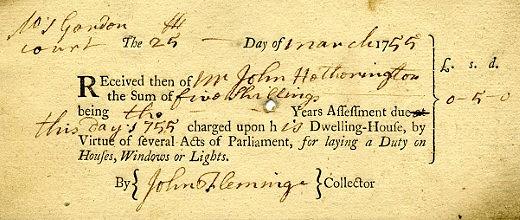 No 5 Gordon
Court The 25th Day of March 1755
£. s. d.
REceived then of Mr John Hetherington
the Sum of five Shillings
0-5-0
being the Years Assessment due at
this day 1755 charged upon his Dwelling-House, by
Virtue of several Acts of Parliament, for laying a Duty on
Houses, Windows or Lights.
By { John Fleminge } Collector